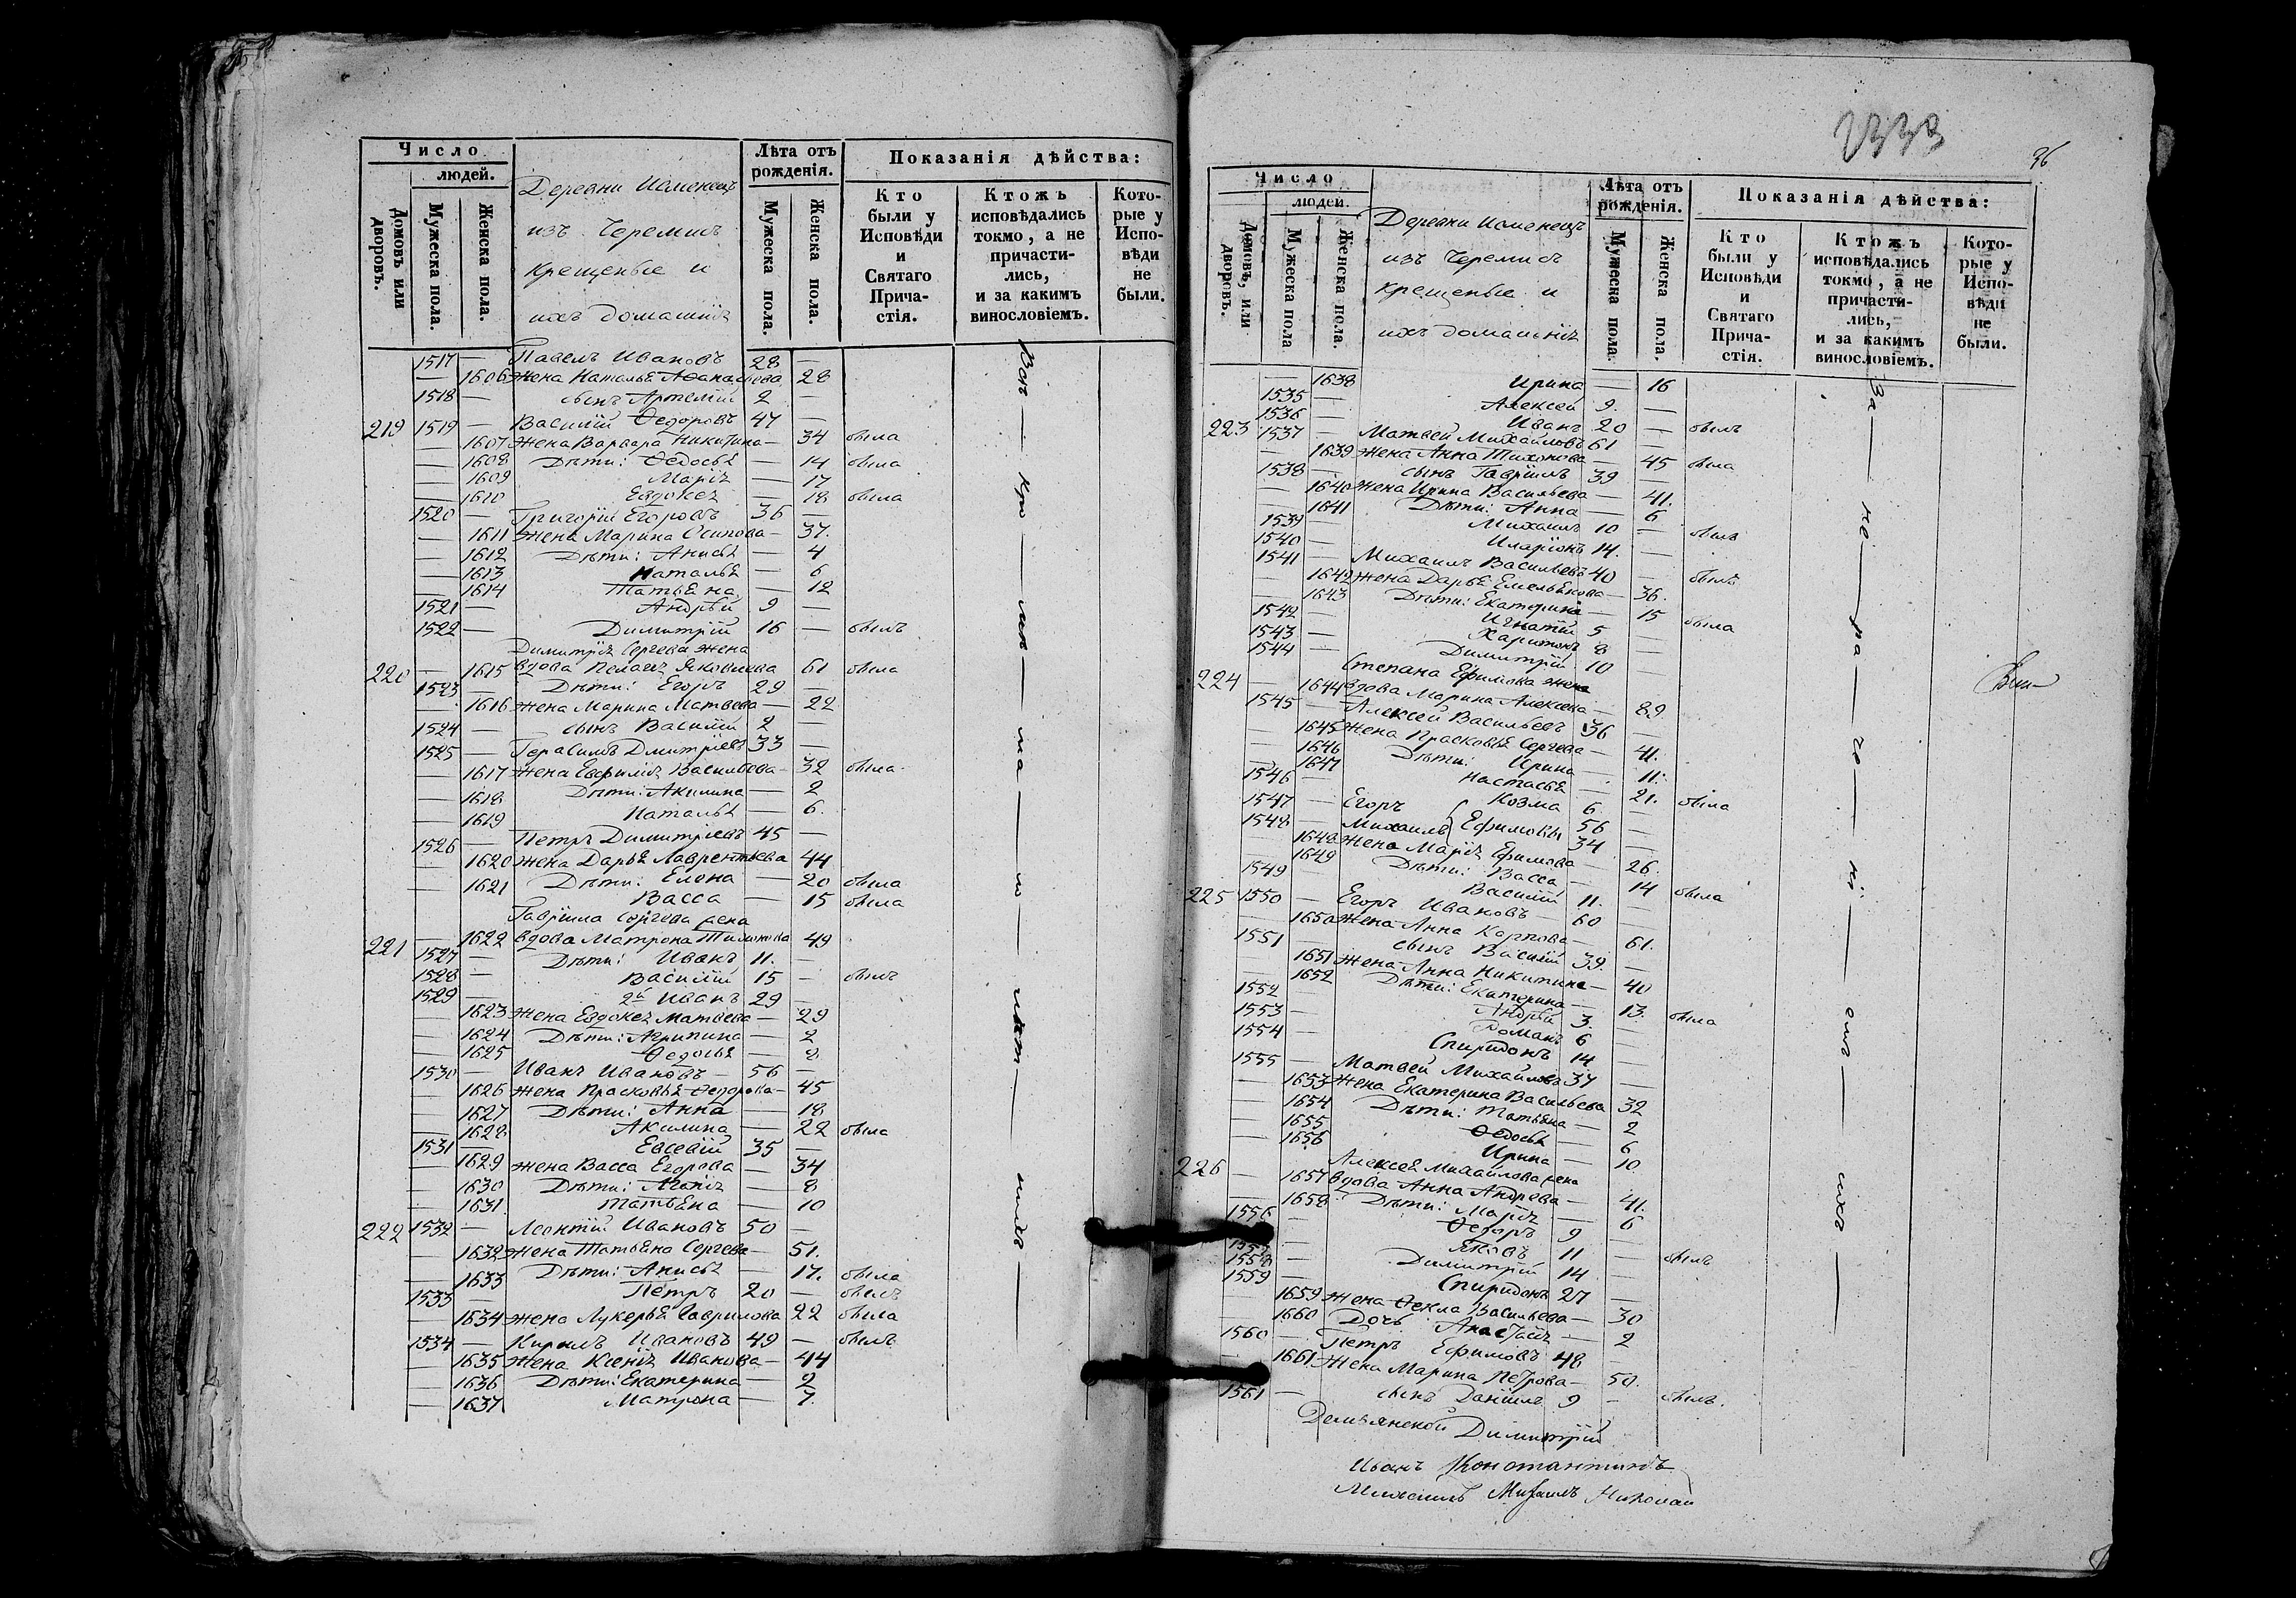 Число
людей.
Домовъ или дворовъ.
Мужеска пола.
Женска пола.
Деревни Исменецъ
изъ Черемисъ
крещеные и
ихъ домашніе
Лѣта отъ рожденія.
Мужеска пола.
Женска пола.
Показанія дѣйства:
Кто были у Исповѣди и Святаго Причастія.
Ктожъ исповѣдались токмо, а не причастились, и за какимъ винословіемъ.
Которые у Исповѣди не были.
1517 — Павелъ Ивановъ 28 —
— 1606 жена Наталья Афанасьева 28
1518 — сынъ Артемій 2 —
219 1519 — Василій Ѳедоровъ 47 —
— 1607 жена Варвара Никитина — 34 была
— 1608 Дѣти: Ѳедосья — 14 была
— 1609 Марія — 17
— 1610 Евдокея — 18 была
1520 — Григорій Егоровъ 36 —
— 1611 жена Марина Осипова — 37.
— 1612 Дѣти: Анисья — 4
— 1613 Наталья — 6
— 1614 Татьяна — 12
1521 — Андрей 9 —
1522 — Димитрій 16 — былъ
Димитрія Сергева жена
220 — 1615 вдова Пелагея Яковлева 61 была
1523 — Дѣти: Егоръ 29 —
— 1616 жена Марина Матвеева — 22
1524 — сынъ Василій 2 —
1525 — Герасимъ Дмитріевъ 33 —
— 1617 жена Евфимія Васильева — 32 была
— 1618 Дѣти: Акилина — 2
— 1619 Наталья — 6.
1526 — Петръ Димитріевъ 45 —
— 1620 жена Дарья Лаврентьева 44
— 1621 Дѣти: Елена — 20 была
Васса — 15 была
Гавріила Сергева жена
221 — 1622 вдова Матрона Тихонова 49
1527 — Дѣти: Иванъ 11. —
1528 — Василій 15 — былъ
1529 — 2й Иванъ 29 —
— 1623 жена Евдокея Матвеева — 29
— 1624 Дѣти: Агрипина — 2
— 1625 Ѳедосья — 8
1530 — Иванъ Ивановъ — 56 —
— 1626 жена Прасковья Ѳедорова — 45
— 1627 Дѣти: Анна — 18
— 1628 Акилина — 22 была
1531 Евсевій 35 —
— 1629 жена Васса Егорова — 34
— 1630 Дѣти: Агапія — 8
— 1631 Татьяна — 10
222 1532 — Леонтій Ивановъ 50 —
— 1632 жена Татьяна Сергева — 51.
— 1633 Дѣти: Анисья — 17. была
1533 Петръ 20 — былъ
— 1634 жена Лукерья Гаврилова 22 была
1534 — Кирилъ Ивановъ 49 — былъ
— 1635 жена Ксенія Иванова — 44
— 1636 Дѣти: Екатерина — 2
— 1637 Матрона — 7.
96
Число
людей.
Домовъ, или дворовъ.
Мужеска пола
Женска пола.
Деревни Исменецъ
изъ Черемисъ
крещеные и
ихъ домашніе
Лѣта отъ рожденія.
Мужеска пола.
Женска пола.
Показанія дѣйства:
Кто были у Исповѣди и Святаго Причастія.
Ктожъ исповѣдались токмо, а не причастились, и за какимъ винословіемъ.
Которые у Исповѣди не были.
1638 Ирина — 16
1535 — Алексей 9. —
1536 — Иванъ 20 — былъ
223 1537 — Матвей Михайловъ 61 —
— 1639 жена Анна Тихонова — 45 была
1538 — сынъ Гавріилъ 39 —
— 1640 жена Ирина Васильева — 41.
— 1641 Дѣти: Анна — 6
1539 — Михаилъ 10 — былъ
1540 — Иларіонъ 14. —
1541 — Михаилъ Васильевъ 40 — былъ
— 1642 жена Дарья Емельянова — 36.
— 1643 Дѣти: Екатерина — 15 была
1542 — Игнатій 5 —
1543 — Харитонъ 8 —
1544 — Димитрій 10 —
Степана Ефимова жена
224 — 1644 вдова Марина Алексева — 89
1545 — Алексей Васильевъ 36 —
— 1645 жена Прасковья Сергева — 41.
— 1646 Дѣти: Ирина — 11.
— 1647 Настасья — 21. была
1546 — Козма 6 —
1547 — Егоръ Ефимовы 56 —
1548 — Михаилъ 34 —
— 1648 жена Марія Ефимова — 26.
— 1649 Дѣти: Васса — 14 была
1549 — Василій 11. —
225 1550 — Егоръ Ивановъ — 60 —
— 1650 жена Анна Карпова — 61.
1551 — сынъ Василій 39. —
— 1651 жена Анна Никитина — 40
— 1652 Дѣти: Екатерина — 13. была
1552 — Андрей 3. —
1553 — Романъ 6 —
1554 — Спиридонъ 14 —
1555 — Матвей Михайловъ 37 —
— 1653 жена Екатерина Васильева 32
— 1654 Дѣти: Татьяна — 2
— 1655 Ѳедосья — 6
— 1656 Ирина — 10
Алексея Михайлова жена
226 — 1657 вдова Анна Андрева — 41.
— 1658 Дѣти: Марія — 6
1556 — Ѳедоръ 9 —
1557 — Яковъ 11 — былъ
1558 — Димитрій 14 —
1559 — Спиридонъ 27 —
— 1659 жена Ѳекла Васильева — 30
— 1660 Дочь Анастасія — 2
1560 — Петръ Ефимовъ 48 —
— 1661 жена Марина Петрова — 50.
1561 — сынъ Даніилъ 9 — былъ.
Димитрій
Иванъ Константинъ
Михаилъ Николай